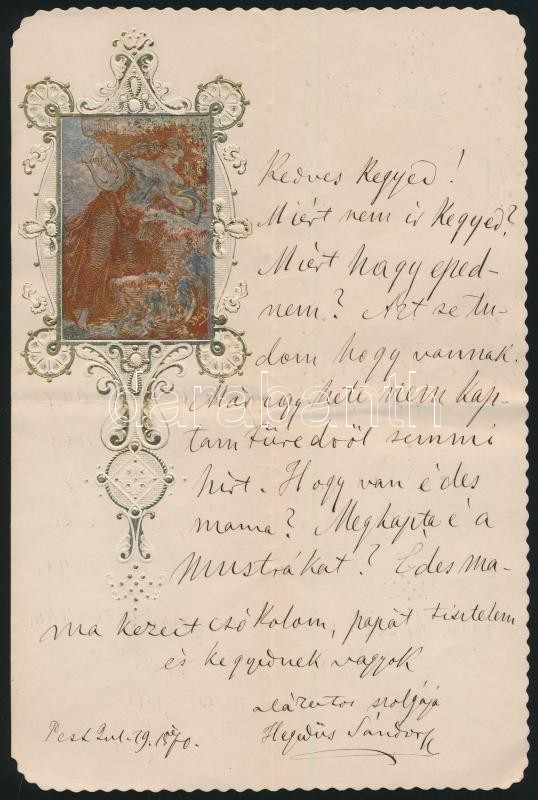 Kedves Kegyed!
Miért nem ír Kegyed?
Miért hagy eped-
nem? Azt se tu-
dom hogy vannak.
Már egy hete nem kap-
tam Füredről semmi
hírt. Hogy van édes
mama? Megkapta é a
mustrákat? Édes ma-
ma kezeit csókolom, papát tisztelem
és kegyednek vagyok
alázatos szolgája
Hegedüs Sándor
Pest Jul. 19. 1870.
darabanth